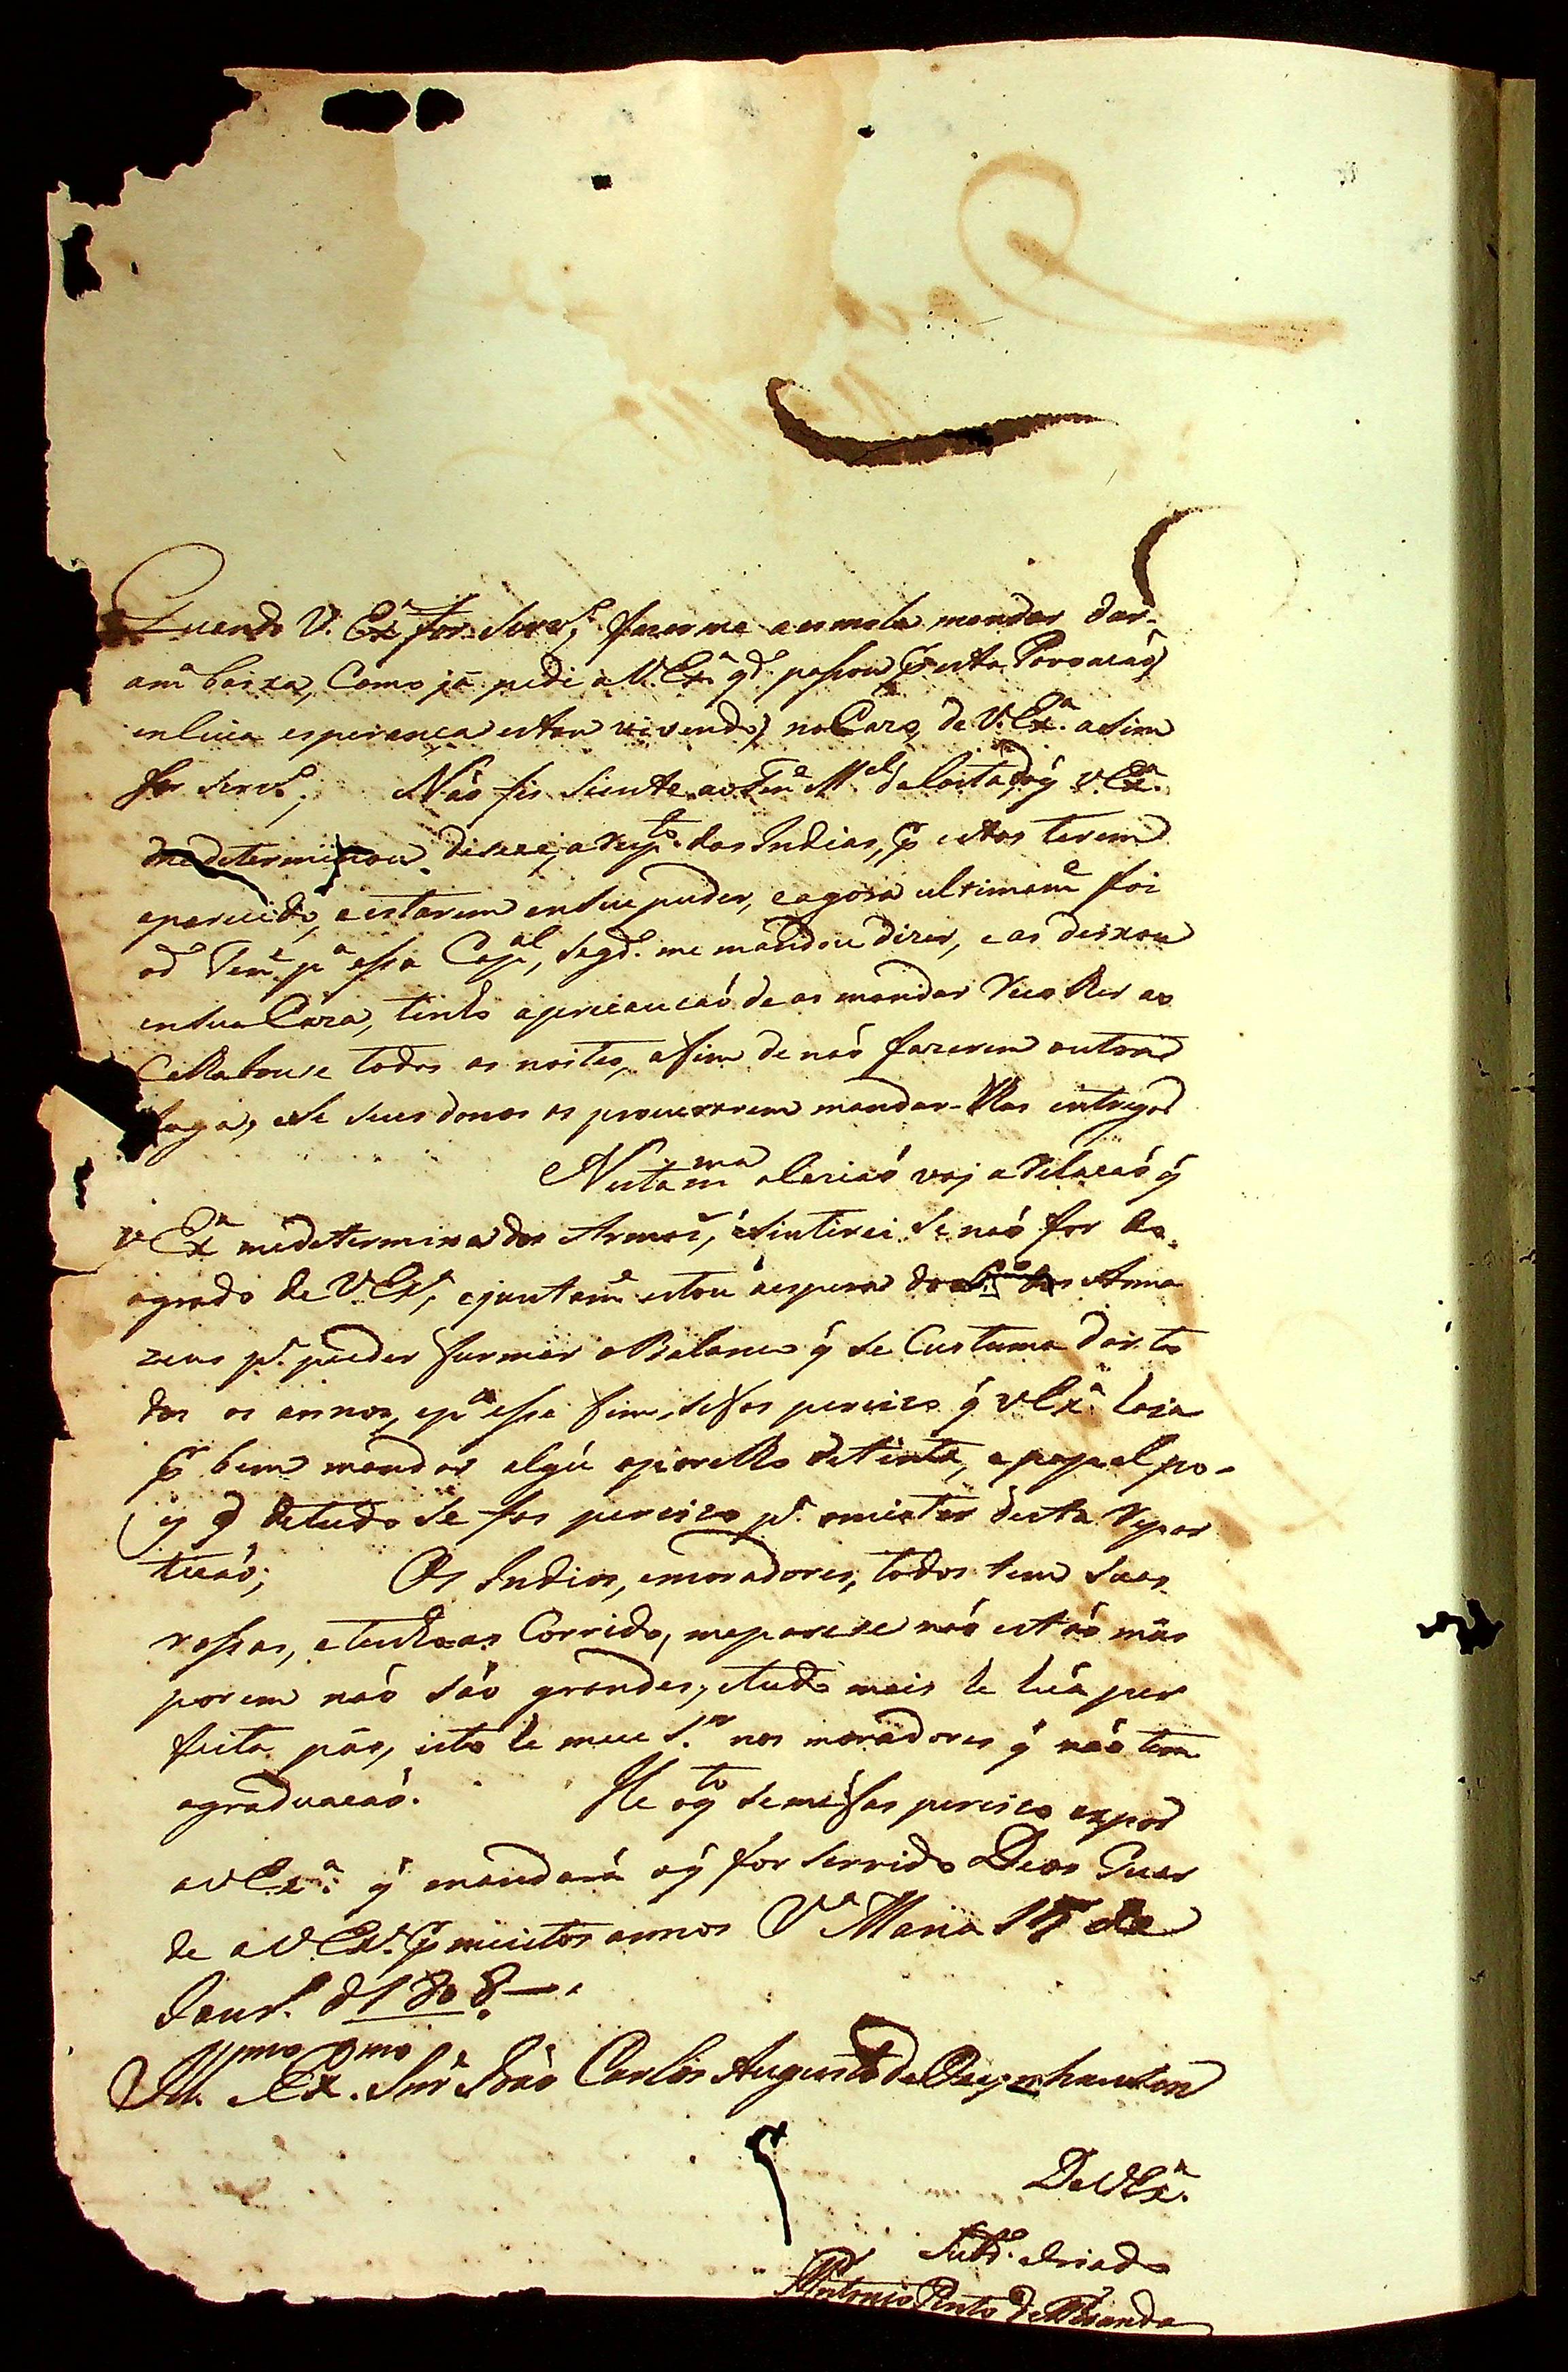 Quando V. Exª for servº, fazerme a esmola mandar dar-
amª baixa, Como já pedi a V. Exª qdº passou pr esta Povoacaõ
en cuia esperança estou vivendo, no Cazo de V. Exª asim
for servº; Não fis siente ao Tene Mel da Costa do q̃ V. Exª
me determinou disese, a respto das Indias, pr estas terem
aparecido, e estarem en seu puder, e agora ultimamte foi
o dº Tene pª essa Capal, segdº me mandou dizer, e as deixou
en sua Caza, tendo a precaucaõ de as mandar recolher ao
Callabouse todas as noites, afim de naõ fazerem outra
fuga, e se seus donos as procurarem mandar-llas entregar
Nesta mma ocaziaõ vaj a relacaõ q̃
V Exª me determina dos Armos, e sintirei se naõ for do
agrado de V Exª, e juntame estou a espera da dos Arma
zens pª puder furmar o Balanso q̃ se Custuma dar to
dos os annos, e pª esse fim, se fas perciso q̃ V Exª haja
pr bem mandar algũ aparelho de tinta, e papael po-
is q̃ de tudo se fas perciso pª o mister desta repar
ticaõ; Os Indios, e moradores, todos tem suas
rossas, e tendo as Corrido, me parese naõ estaõ más
porem naõ saõ grandes; e tudo mais he huã per
feita pás, isto he meu Sr. nos moradores q̃ naõ tem
agraduacaõ. He oqto se me fas perciso expor
a V Exª q̃ mandará o q̃ for servido Deos Guar
de a V Exª pr muitos annos Vª Maria 15 de
Janrº d 1808 —
Illmo Exmo Snr João Carlos Augusto de Oeynhausen
De V Exª
Subdº Criado
Antonio Pinto de Miranda